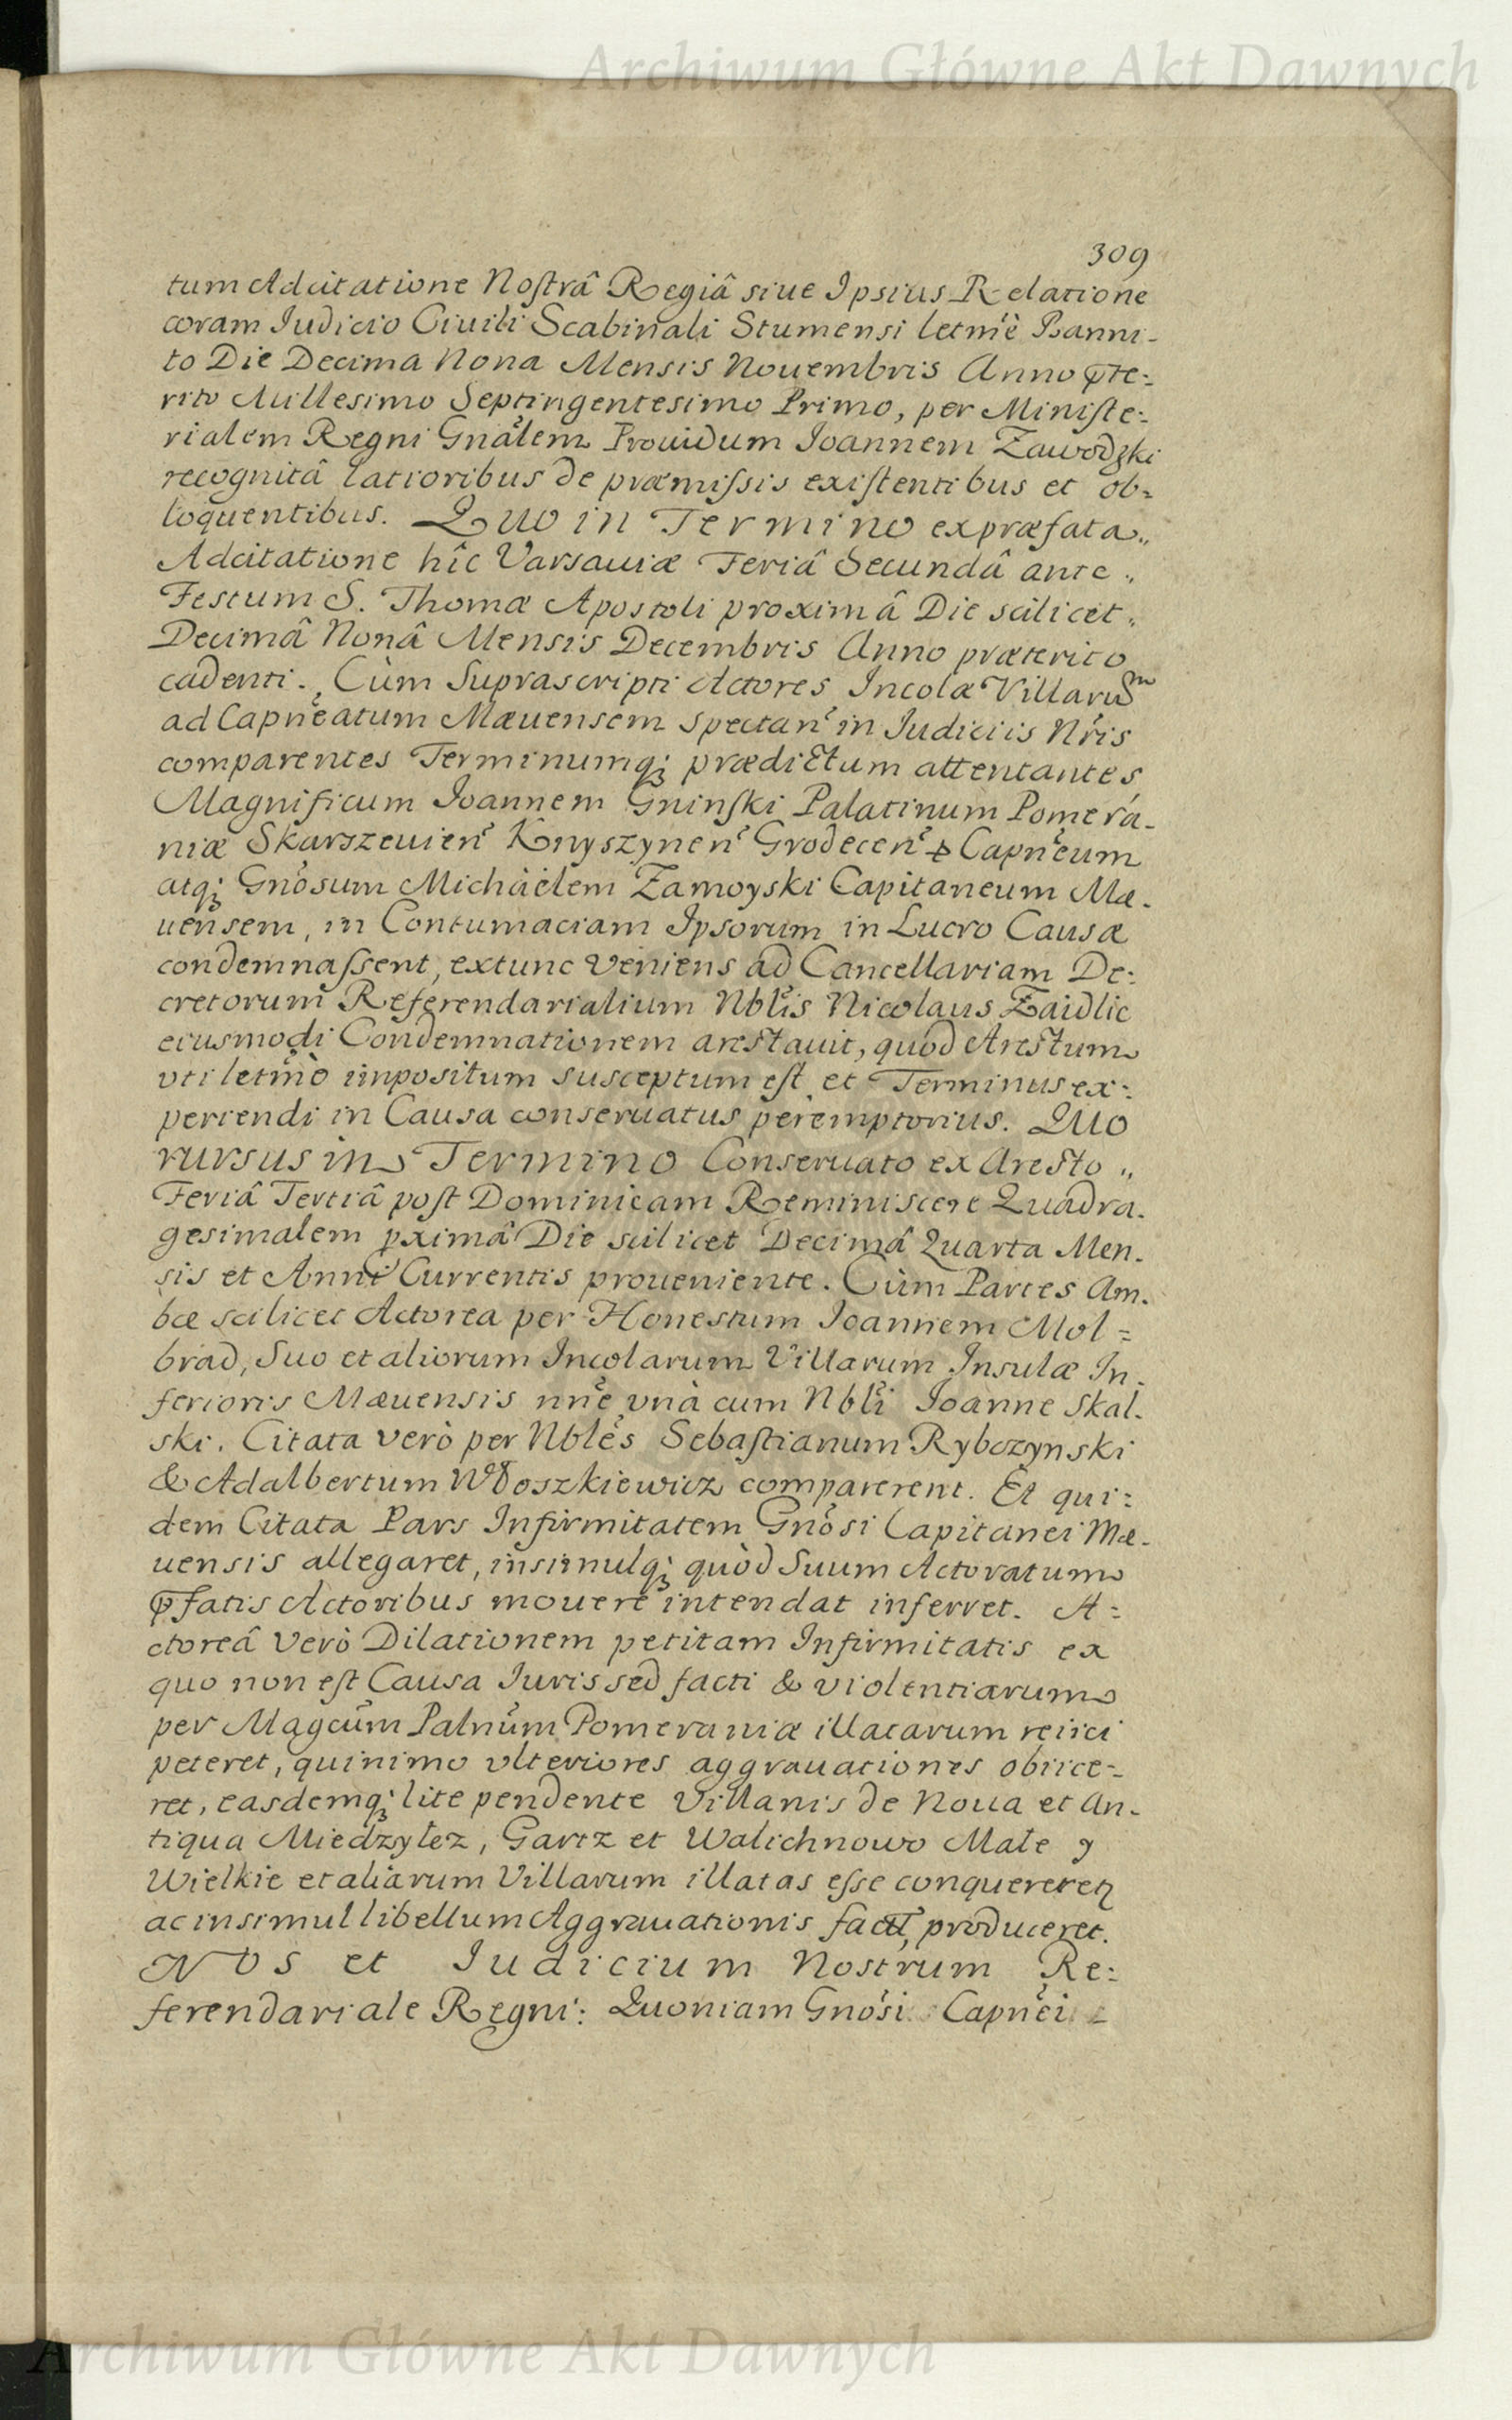 Archiwum Główne Akt Dawnych
309
tum Adcitatione Nostrâ Regiâ siue Ipsius Relatione
coram Iudicio Ciuili Scabinali Stumensi letmè Banni-
to Die Decima Nona Mensis Nouembris Anno p̄te:
rito Millesimo Septingentesimo Primo, per Ministe:
rialem Regni Gnãlem Prouidum Ioannem Zawodzki
recognitâ latioribus de præmissis existentibus et ob=
loquentibus. Quo in Termino ex præfata„
Adcitatione hîc Varsauiæ Feriâ Secundâ ante„
Festum S. Thomæ Apostoli proximâ Die scilicet„
Decimâ Nonâ Mensis Decembris Anno præterito
cadenti. Cùm Suprascripti Actores Incolæ Villarum
ad Capneatum Mæuensem spectan in Iudiciis Nris
comparentes Terminumq; prædictum attentantes,
Magnificum Ioannem Gninski Palatinum Pomera-
niæ Skarszeuien Knyszynen Grodecen & Capneum
atq; Gnosum Michaelem Zamoyski Capitaneum Mæ-
uensem, in Contumaciam Ipsorum in Lucro Causæ
condemnassent, extunc Veniens ad Cancellariam De:
cretorum Referendarialium Nblis Nicolaus Zaidlic
eiusmodi Condemnationem arestauit, quod Arestum
vti letmè impositum susceptum est et Terminus ex:
periendi in Causa conseruatus peremptorius. Quo
rursus in Termino Conseruato ex Aresto„
Feriâ Tertiâ post Dominicam Reminiscere Quadra-
gesimalem pximâ Die scilicet Decimâ Quarta Men-
sis et Anni Currentis proueniente. Cùm Partes Am-
bæ scilicet Actorea per Honestum Ioannem Mol=
brad, Suo et aliorum Incolarum Villarum Insulæ In-
ferioris Mæuensis nne vnà cum Nbli Ioanne Skal-
ski. Citata verò per Nbles Sebastianum Rybczynski
& Adalbertum Włoszkiewicz comparerent. Et qui:
dem Citata Pars Infirmitatem Gnosi Capitanei Mæ-
uensis allegaret, insimulq; quòd Suum Actoratum
p̄fatis Actoribus mouere intendat inferret. A:
ctoreâ Verò Dilationem petitam Infirmitatis ex
quo non est Causa Iuris sed facti & violentiarum
per Magcum Palnum Pomeraniæ illatarum reiici
peteret, quinimo vlteriores aggrauationes obiice:
ret, easdemq; lite pendente Villanis de Noua et An-
tiqua Miedzyłez, Gartz et Walichnowo Małe y
Wielkie et aliarum Villarum illatas esse conquereretq
ac insimul libellum Aggrauationis facti, produceret.
Nos et Iudicium Nostrum Re:
ferendariale Regni: Quoniam Gnosi Capnei
Archiwum Główne Akt Dawnych